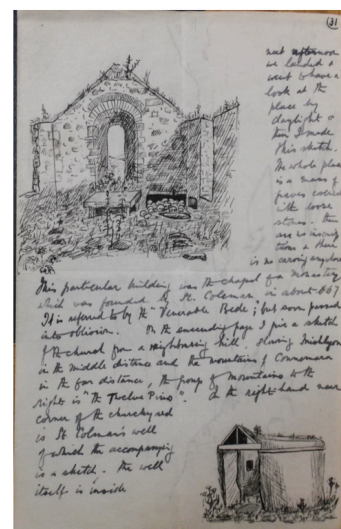 31
next afternoon
we landed &
went to have a
look at the
place by
daylight &
then I made
this sketch.
The whole place
is a mass of
graves covered
with loose
stones. There
are no inscrip
tions & there
is no carving anywhere
This particular building was the chapel of a Monastery
which was founded by St. Coleman in about 667
It is referred to by the "Venerable Bede"; but soon passed
into oblivion. On the succeeding page I give a sketch
of the church from a neighbouring hill, showing
in the middle distance and the mountains of Connemara
in the far distance, the group of mountains to the
right is "the Twelve Pins". At the right hand near
corner of the churchyard
is St Colman's well
of which the accompanying
is a sketch. The well
itself is inside